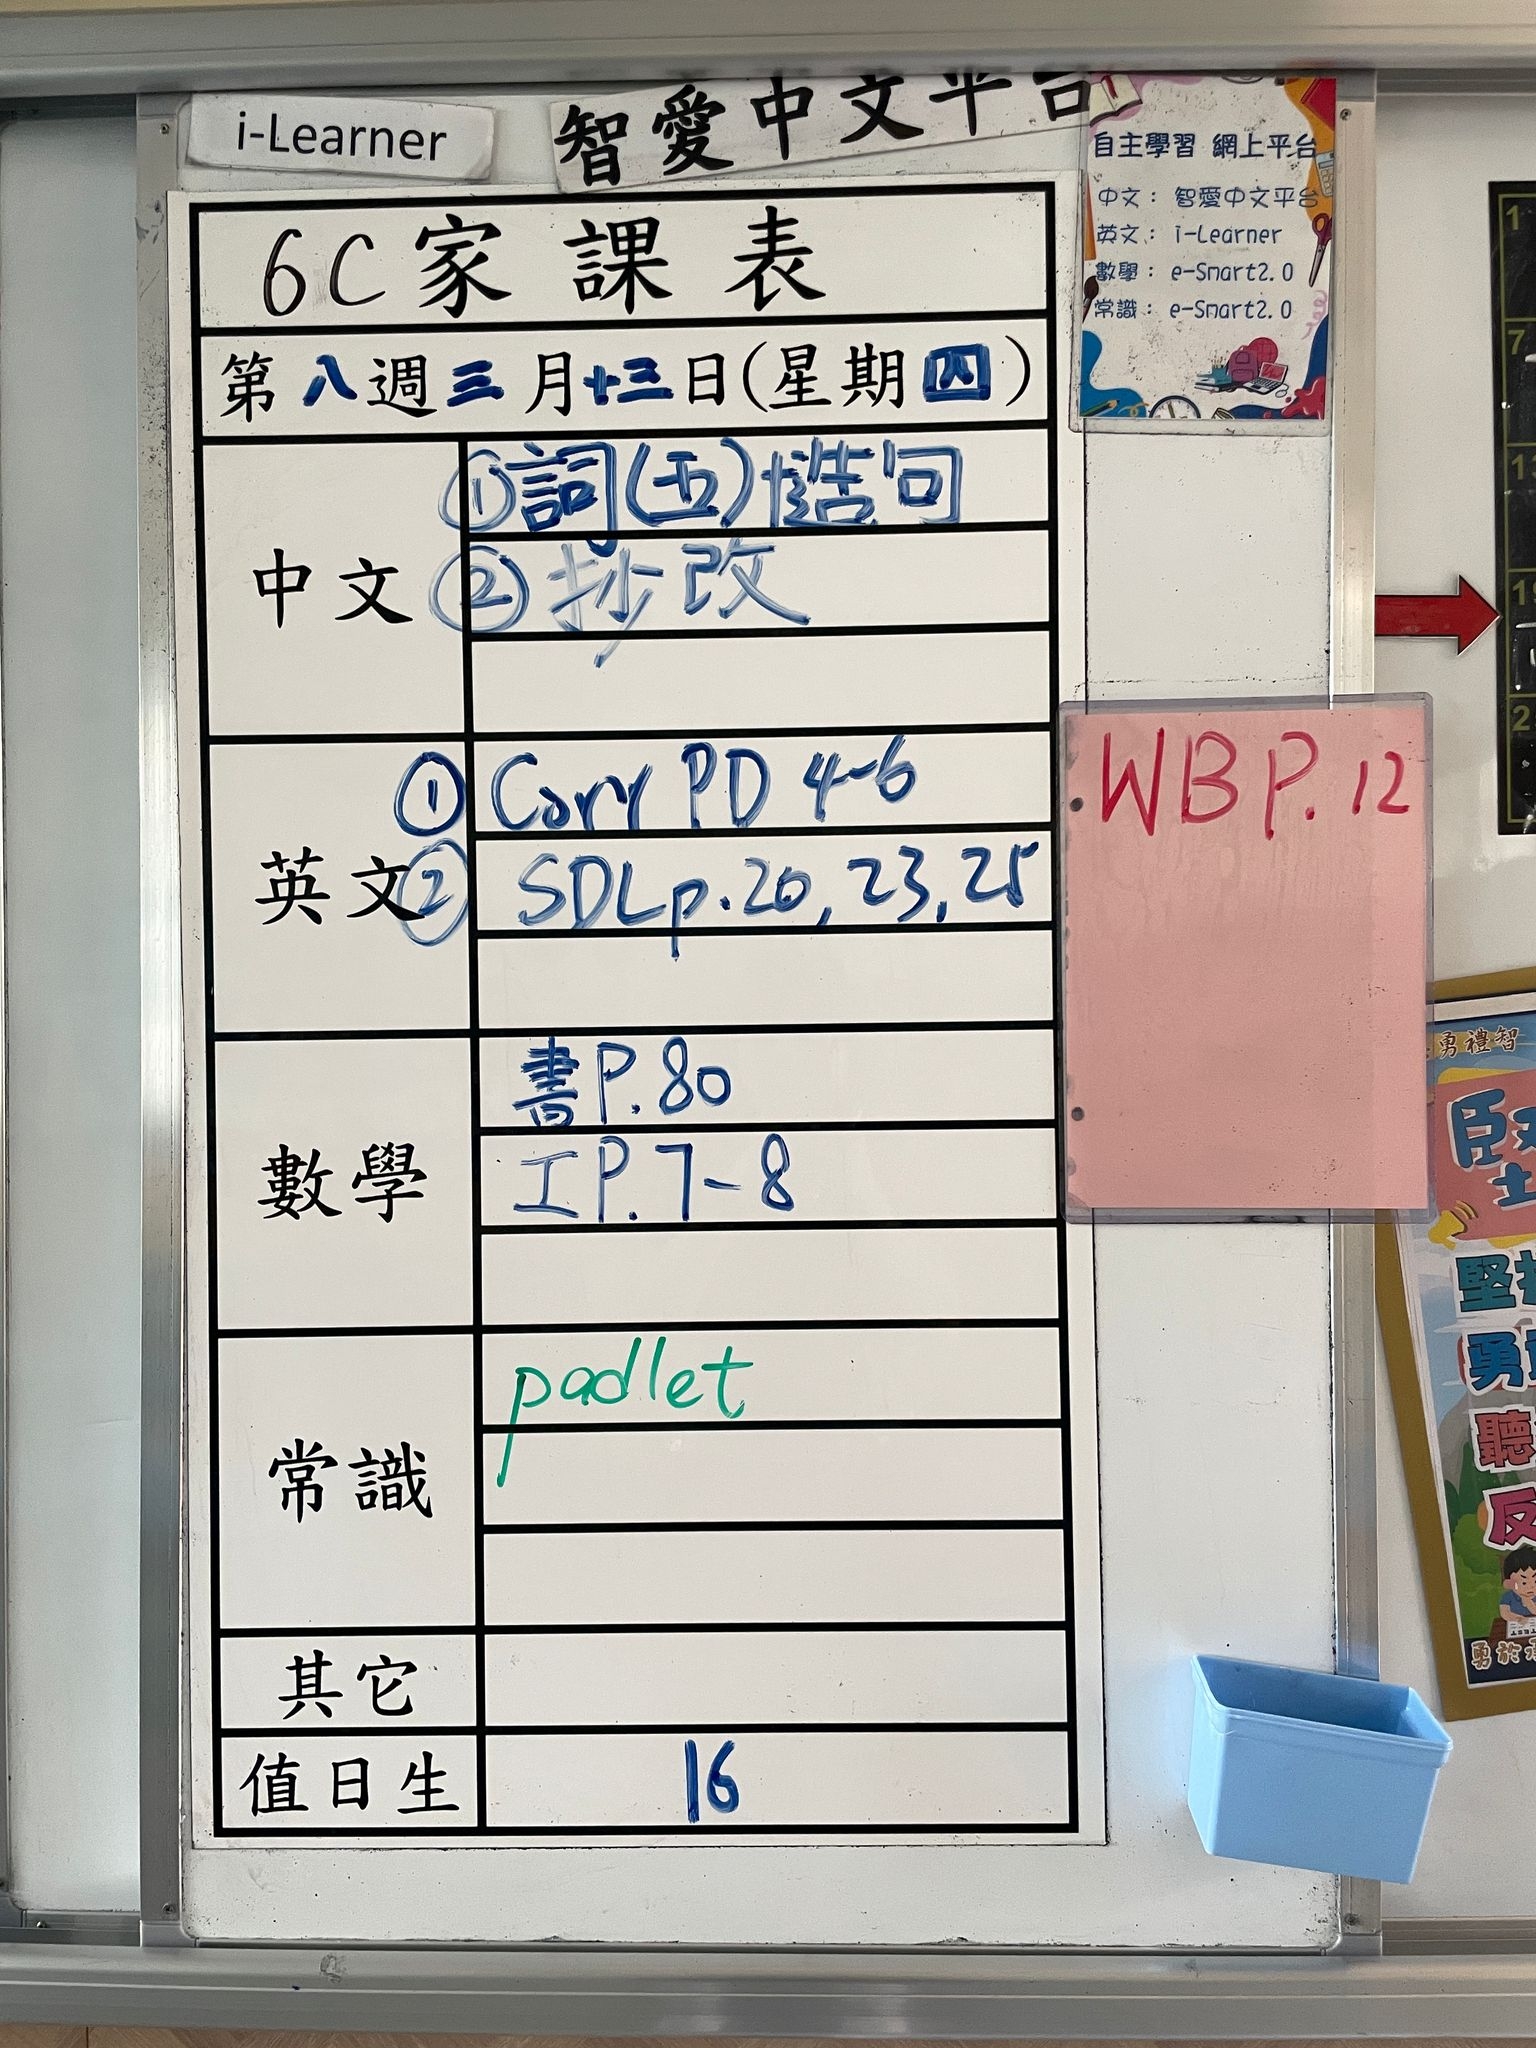 i-Learner
智愛中文平台
自主學習 網上平台
中文： 智愛中文平台
英文： i-Learner
數學： e-Smart2.0
常識： e-Smart2.0
6C家課表
第八週三月十三日(星期四)
中文
①詞(五)造句
②抄改
英文
①Corr PD 4-6
②SDL p.20,23,25
WB P.12
數學
書P.80
工P.7-8
常識
padlet
其它
值日生
16
勇禮智
堅
勇
聽
反
勇於
1
7
2